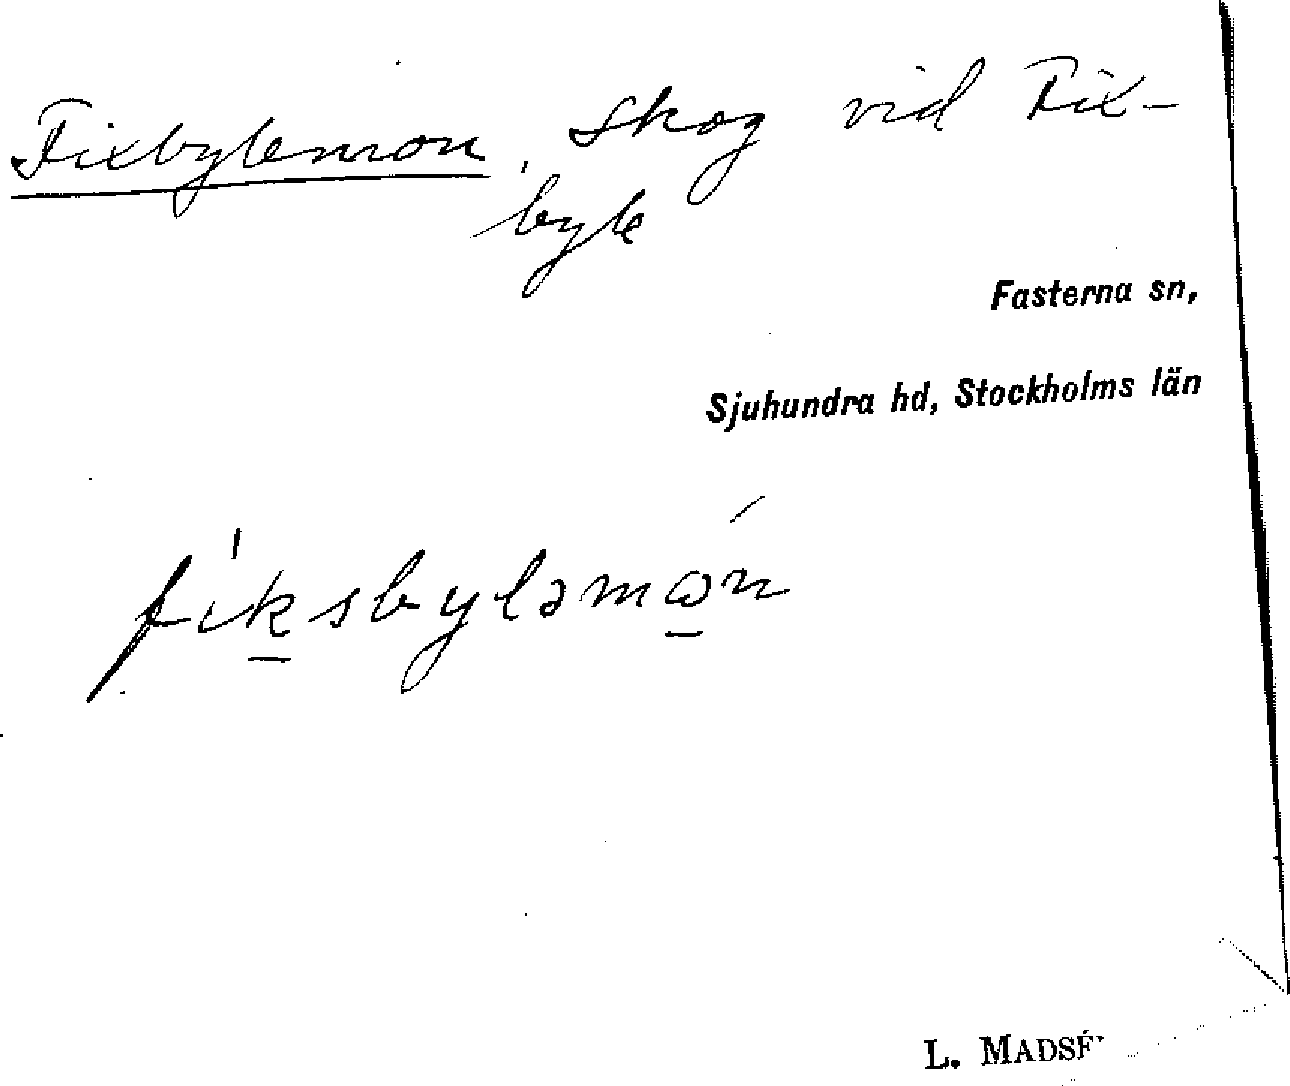 Fixbylemon, Skog vid Fix-
byle
Fasterna sn,
Sjuhundra hd, Stockholms län
fiksbyləmɷn
L. MADSÉ